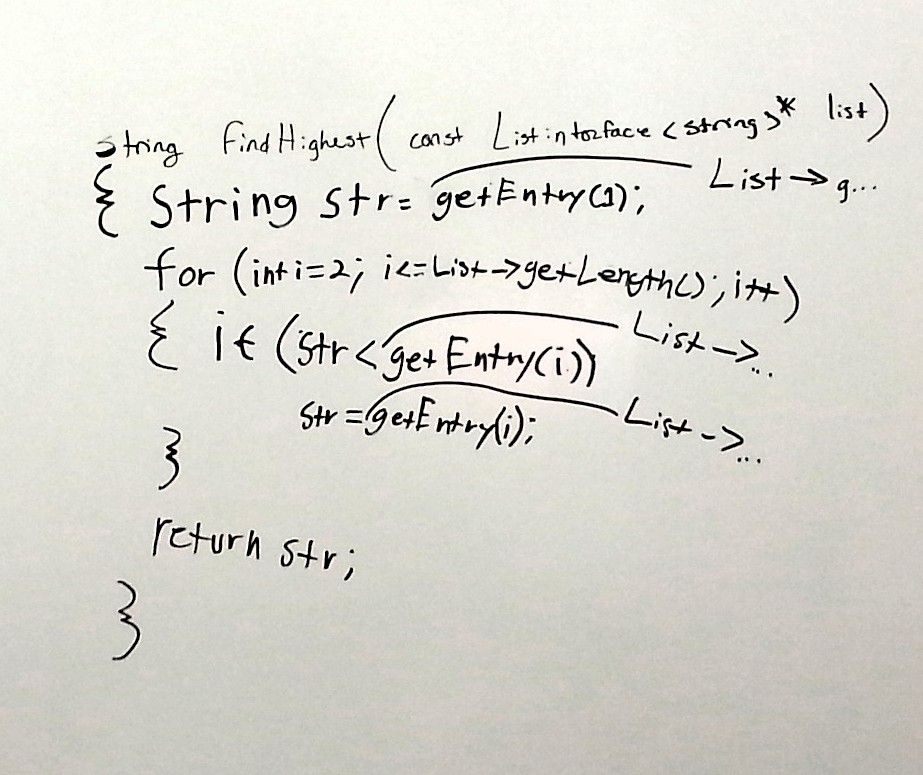 string FindHighest( const Listinterface <string>* list)
{ String str= getEntry(1); List→g...
for (int i=2; i<=List->getLength(); i++)
{ if (str<getEntry(i)) List->...
str=getEntry(i); List->...
}
return str;
}